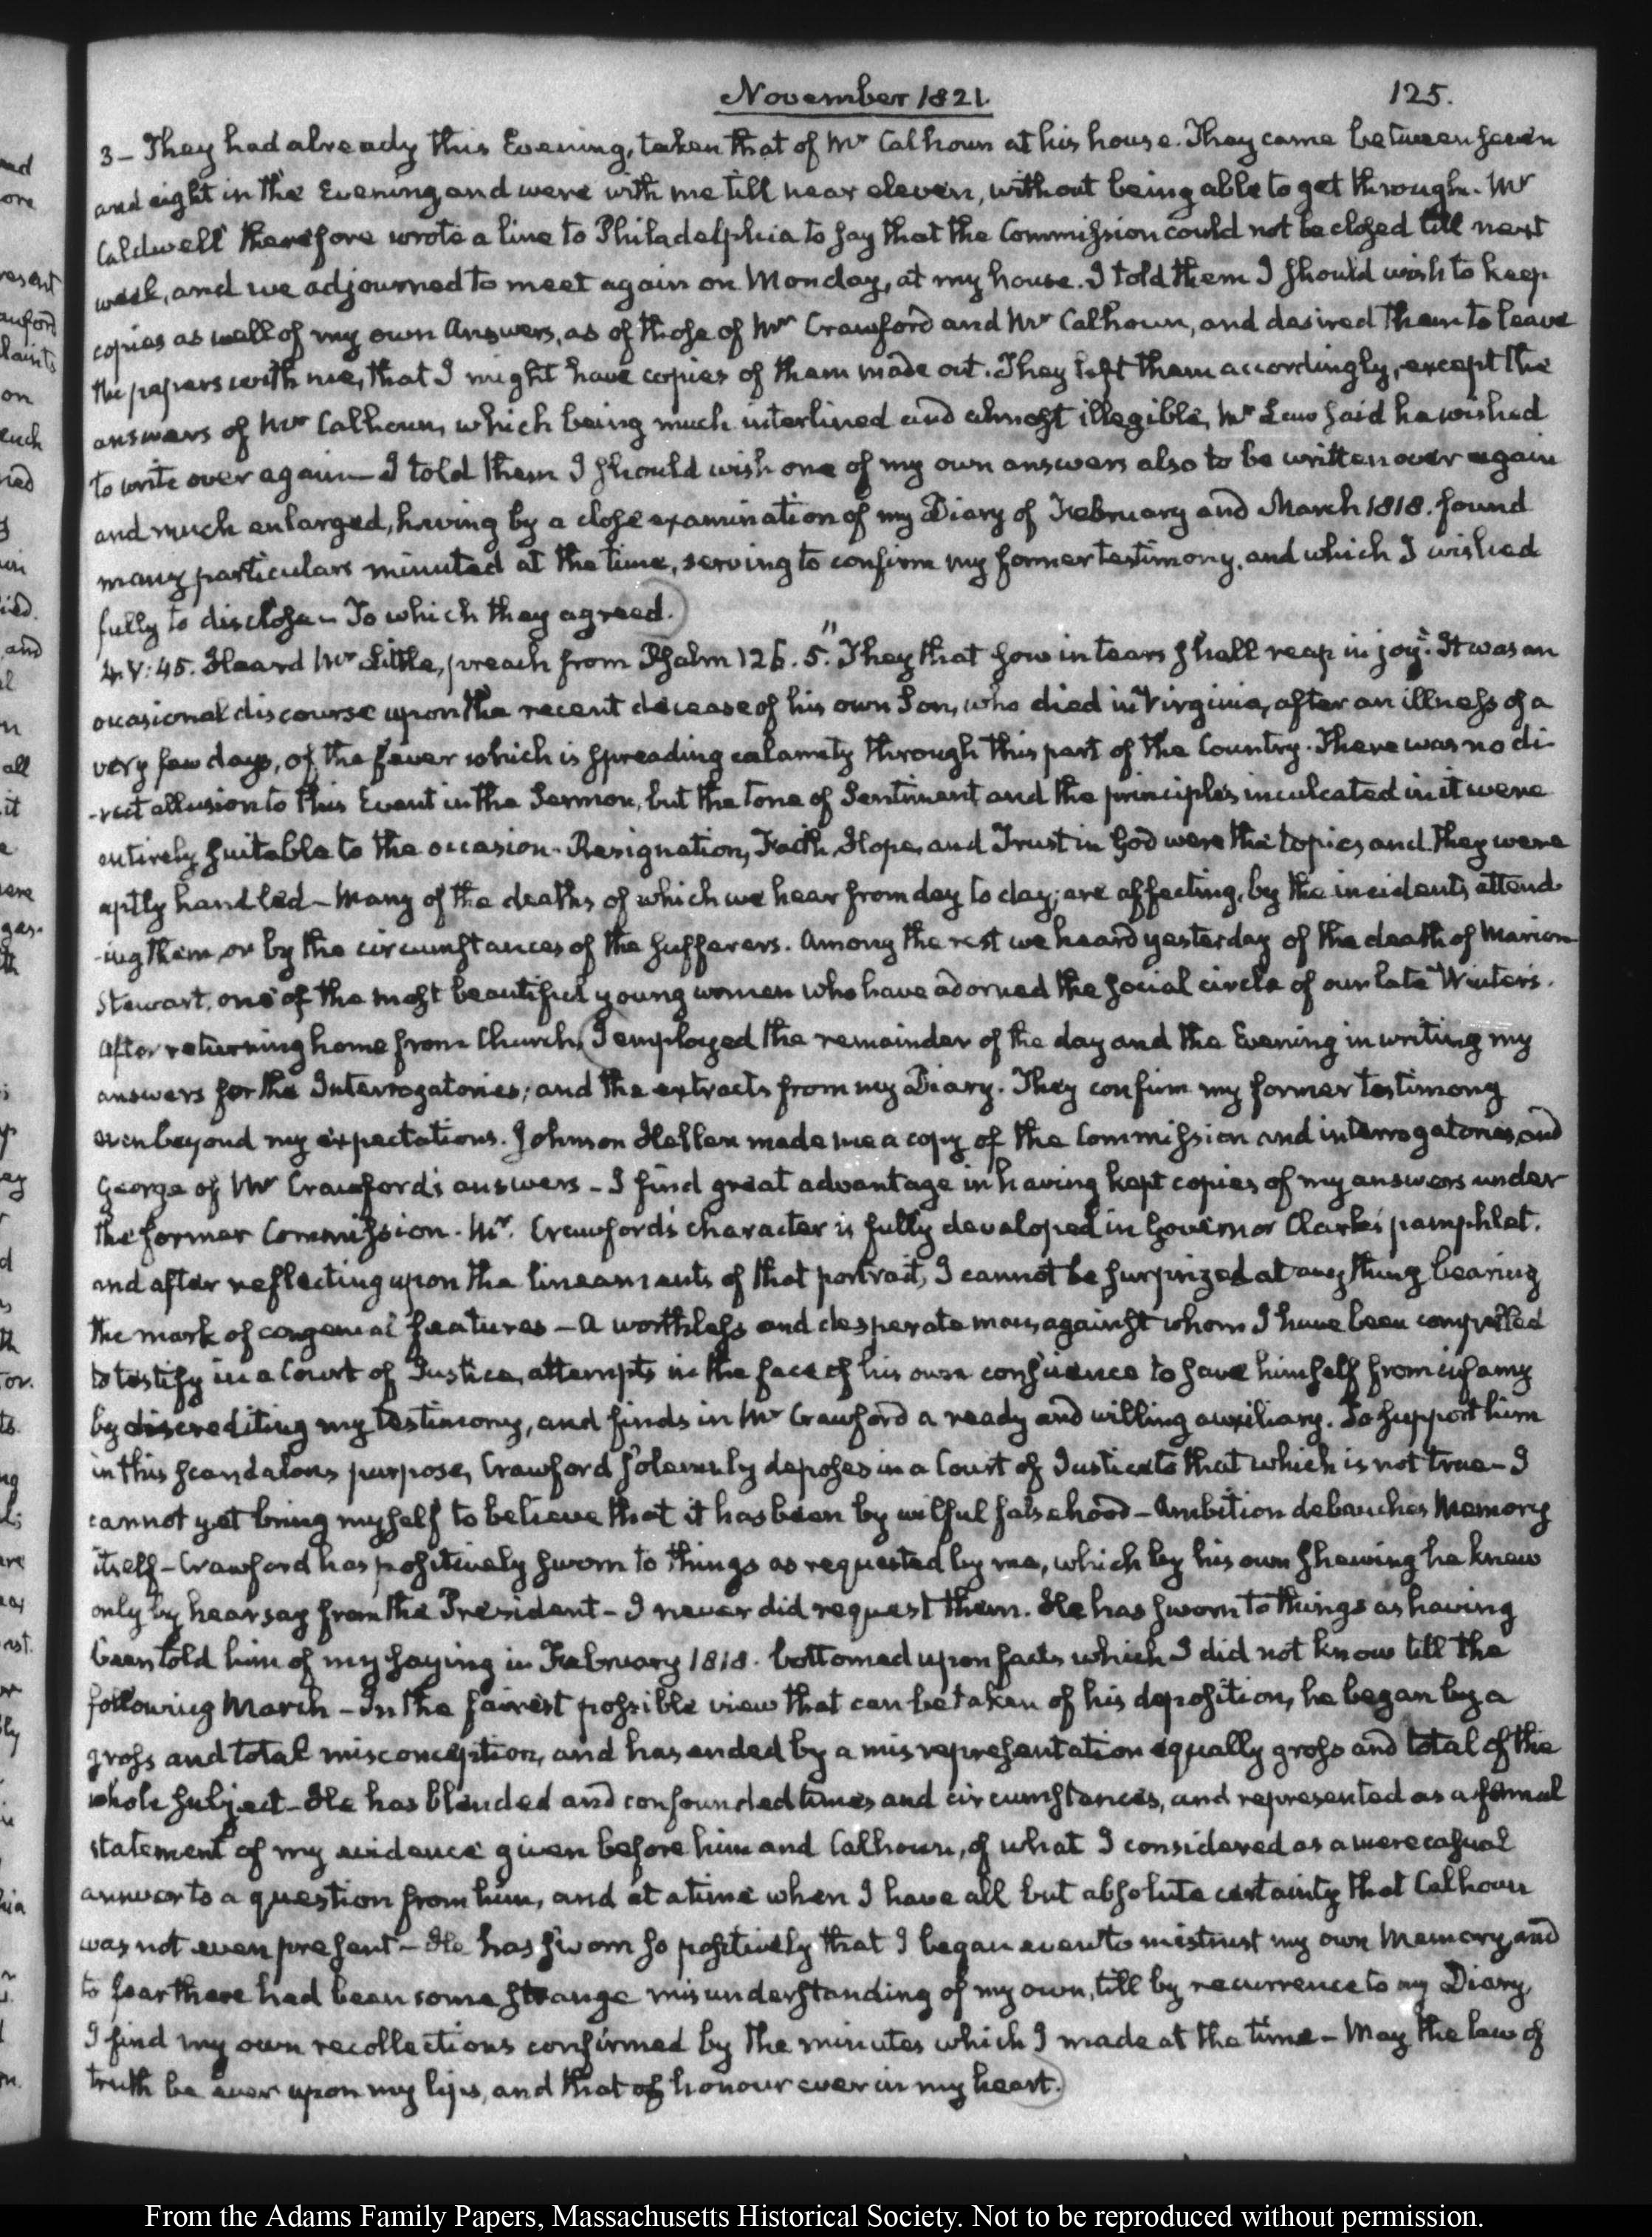 November 1821.
125.
3 – They had already this Evening, taken that of Mr Calhoun at his house. They came between seven
and eight in the Evening and were with me till near eleven, without being able to get through. Mr
Caldwell therefore wrote a line to Philadelphia to say that the Commission could not be closed till next
week, and we adjourned to meet again on Monday, at my house. I told them I should wish to keep
copies as well of my own Answers, as of those of Mr Crawford and Mr Calhoun, and desired them to leave
the papers with me, that I might have copies of them made out. They left them accordingly, except the
answers of Mr Calhoun, which being much interlined and almost illegible, Mr Law said he wished
to write over again – I told them I should wish one of my own answers also to be written over again
and much enlarged, having by a close examination of my Diary of February and March 1818. found
many particulars minuted at the time, serving to confirm my former testimony, and which I wished
fully to disclose – To which they agreed.)
4. V: 45. Heard Mr Little, preach from Psalm 126. 5. "They that sow in tears shall reap in joy." It was an
occasional discourse upon the recent decease of his own Son, who died in Virginia, after an illness of a
very few days, of the fever which is spreading calamity through this part of the Country. There was no di-
-rect allusion to this Event in the Sermon, but the tone of Sentiment and the principles inculcated in it were
entirely suitable to the occasion. Resignation, Faith, Hope, and Trust in God were the topics and they were
aptly handled – Many of the deaths of which we hear from day to day, are affecting, by the incidents attend-
-ing them, or by the circumstances of the sufferers. Among the rest we heard yesterday of the death of Marion
Stewart, one of the most beautiful young women who have adorned the social circle of our late Winters.
After returning home from Church, (I employed the remainder of the day and the Evening in writing my
answers for the Interrogatories; and the extracts from my Diary. They confirm my former testimony
even beyond my expectations. Johnson Hellen made me a copy of the Commission and interrogatories, and
George of Mr Crawford's answers – I find great advantage in having kept copies of my answers under
the former Commission. Mr. Crawford's character is fully developed in Governor Clark's pamphlet.
and after reflecting upon the lineaments of that portrait, I cannot be surprized at any thing bearing
the mark of congenial features – A worthless and desperate man, against whom I have been compelled
to testify in a Court of Justice, attempts in the face of his own conscience to save himself from infamy
by discrediting my testimony, and finds in Mr Crawford a ready and willing auxiliary. To support him
in this scandalous purpose, Crawford solemnly deposes in a Court of Justice to that which is not true – I
cannot yet bring myself to believe that it has been by wilful falsehood – Ambition debauches Memory
itself – Crawford has positively sworn to things as requested by me, which by his own shewing he knew
only by hearsay from the President – I never did request them. He has sworn to things as having
been told him of my saying in February 1818. bottomed upon facts which I did not know till the
following March – In the fairest possible view that can be taken of his deposition, he began by a
gross and total misconception, and has ended by a misrepresentation equally gross and total of the
whole subject – He has blended and confounded times and circumstances, and represented as a formal
statement of my evidence given before him and Calhoun, of what I considered as a mere casual
answer to a question from him, and at a time when I have all but absolute certainty that Calhoun
was not even present – He has sworn so positively that I began even to mistrust my own Memory, and
to fear there had been some strange misunderstanding of my own, till by recurrence to my Diary,
I find my own recollections confirmed by the minutes which I made at the time – May the law of
truth be ever upon my lips, and that of honour ever in my heart.)
From the Adams Family Papers, Massachusetts Historical Society. Not to be reproduced without permission.